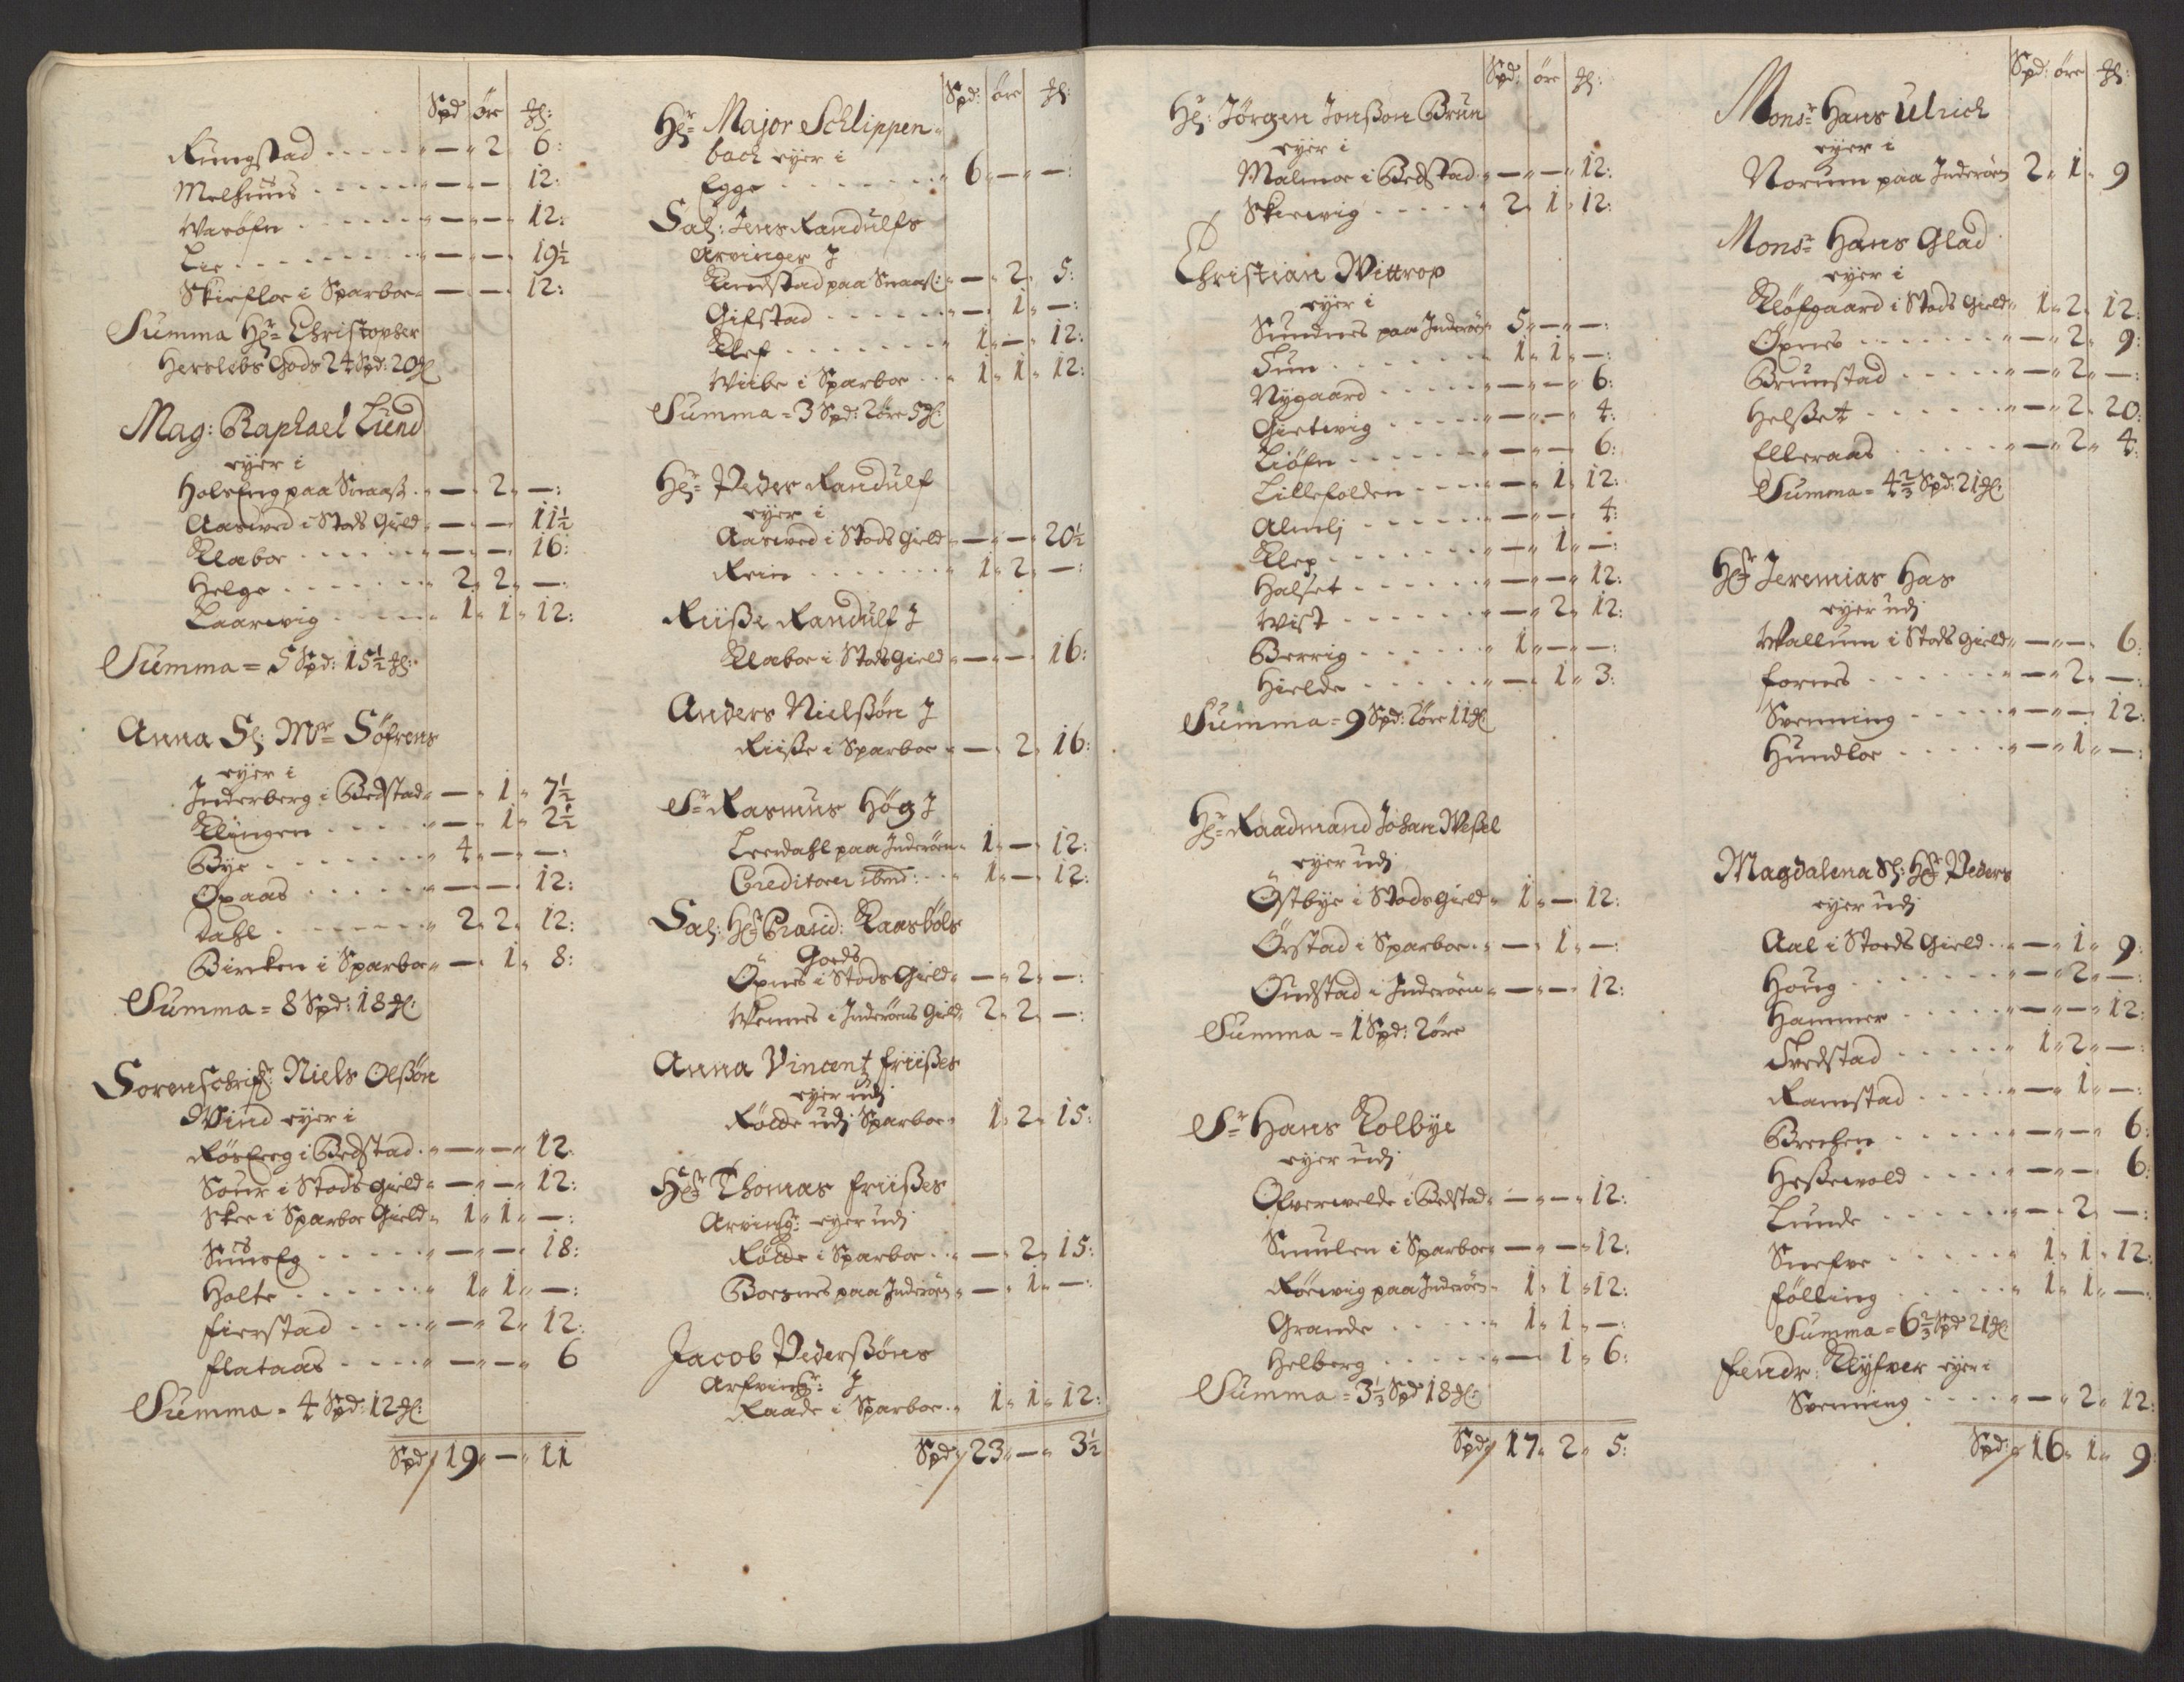 Spd øre ß:
Rungstad ..... — " 2 " 6:
Melhuus ..... — " — " 12:
Warøfn ..... — " — " 12:
Lee ..... — " — " 19½
Skieflor i Sparboe — " — " 12:
Summa Hr: Christopher
Herslebs Gods 24 Spd: 20 ß
Mag: Raphael Lund
eyer i
Holefng paa Snaasen — " 2 " —:
Aasved i Stods Gield — " — " 11½
Klaboe ..... — " — " 16:
Helge ..... 2 " 2 " —:
Laarwig ..... 1 " 1 " 12:
Summa = 5 Spd: 15½ ß:
Anna Sl: Mr Søfrens
eyer i
Inderberg i Bedstad — " 1 " 7½
Klingen ..... — " 1 " 2½
Bye ..... 4 " — " —:
Opaas ..... — " — " 12:
Dahl ..... 2 " 2 " 12:
Bircken i Sparboe — " 1 " 8:
Summa = 8 Spd: 18 ß:
Sorenschrifr: Niels Olßøn
Wind eyer i
Røsseg i Bedstad — " — " 12:
Souer i Stods gield — " — " 12:
Skee i Sparboe Gield 1 " 1 " —:
— " — " 18:
Holte ..... 1 " 1 " —:
Fierstad ..... — " 2 " 12:
Flataas ..... — " — " 6
Summa = 4 Spd: 12 ß:
Spd 19 " — " 11
Spd: øre ß:
Hr: Major Schlippen-
bach eyer i
Egge ..... 6 " — " —:
Sal: Jens Randulfs
Arvinger J
Kindstad paa Snaasen — " 2 " 5:
Gifstad ..... — " 1 " —:
Klef ..... 1 " — " 12:
Wiibe i Sparboe ... 1 " 1 " 12:
Summa = 3 Spd: 2 øre 5 ß:
Hr: Peder Randulf
eyer i
Aasved i Stods Gield — " — " 20½
Rein ..... 1 " 2 " —:
Riiße Randulf J
Klaboe i Stods Gield — " — " 16:
Anders Nielßøn J
Riiße i Sparboe — " 2 " 16:
Sr: Rasmus Høg J
Leerdahl paa Inderøen 1 " — " 12:
Creditorer ibmd: .. 1 " — " 12:
Sal: Hr: Præsid: Kaasbøls
Goeds
Öpnes i Stods Gield — " 2 " —:
Wennes i Inderøens Gield 2 " 2 " —:
Anna Vincent Friißes
eyer udj
Røcke udj Sparboe 1 " 2 " 15:
Hr: Thomas Friißes
Arvingr: eyer udj
Røcke i Sparboe .. — " 2 " 15:
Borsnes paa Inderøen — " 1 " —:
Jacob Pederßøns
Arfvingr: J
Raade i Sparboe .. 1 " 1 " 12:
Spd 23 " — " 3½
Spd: øre ß:
Hr: Jörgen Jonßon Brun
eyer i
Malmoe i Bedstad — " — " 12:
Skierwig ..... 2 " 1 " 12:
Christian Wittrop
eyer i
Sundnes paa Inderøen 5 " — " —:
Tun ..... 1 " 1 " —:
Nygaard ..... — " — " 6:
Gietwig ..... — " — " 4:
Liøfn ..... — " — " 6:
Lillefolden .... — " 1 " 12:
Almlj ..... — " — " 4:
Klep ..... — " 1 " —:
Halset ..... — " — " 12:
Wist ..... — " 2 " 12:
Berrig ..... 1 " — " —:
Hielde ..... — " 1 " 3:
Summa = 9 Spd: 2 øre 11 ß
Hr: Raadmand Johan Weßel
eyer udj
Östbye i Stods Gield 1 " — " 12:
Örstad i Sparboe .. — " 1 " —:
Oudstad i Inderøen — " — " 12:
Summa = 1 Spd: 2 øre
Sr Hans Kolbye
eyer udj
Ofverwelde i Bedstad — " — " 12:
Smulen i Sparboe — " — " 12:
Röewig paa Inderøen 1 " 1 " 12:
Grande ..... 1 " 1 " —:
Helberg ..... — " 1 " 6:
Summa = 3⅓ Spd 18 ß:
Spd 17 " 2 " 5:
Spd: øre ß:
Monsr Hans Ulrich
eyer i
Norum paa Inderøen 2 " 1 " 9
Monsr Hans Glad
eyer i
Kløfgaard i Stods Gield 1 " 2 " 12:
Öpnes ..... — " 2 " 9:
Brunstad ..... — " 2 " —:
Helßet ..... — " 2 " 20:
Elleraas ..... — " 2 " 4:
Summa = 4⅔ Spd: 21 ß:
Hr Jeremias Has
eyer udj
Wallum i Stods Gield — " — " 6:
Fornes ..... — " 2 " —:
Svenning ..... — " — " 12:
Hundloe ..... — " 1 " —:
Magdalena Sl: Hr Peders
eyer udj
Aal i Stoeds Gield .. — " 1 " 9:
Houg ..... — " 2 " —:
Hammer ..... — " — " 12:
Tvedstad ..... 1 " 2 " —:
Ramstad ..... — " 1 " —:
Brehen ..... — " — " 6:
Heßewold .... — " — " 6:
Lunde ..... — " 2 " —:
Snefve ..... 1 " 1 " 12:
Følling ..... 1 " 1 " —:
Summa = 6⅔ Spd 21 ß:
Fendr: Klyfver eyer i
Svenning ..... — " 2 " 12:
Spd: 16 " 1 " 9: